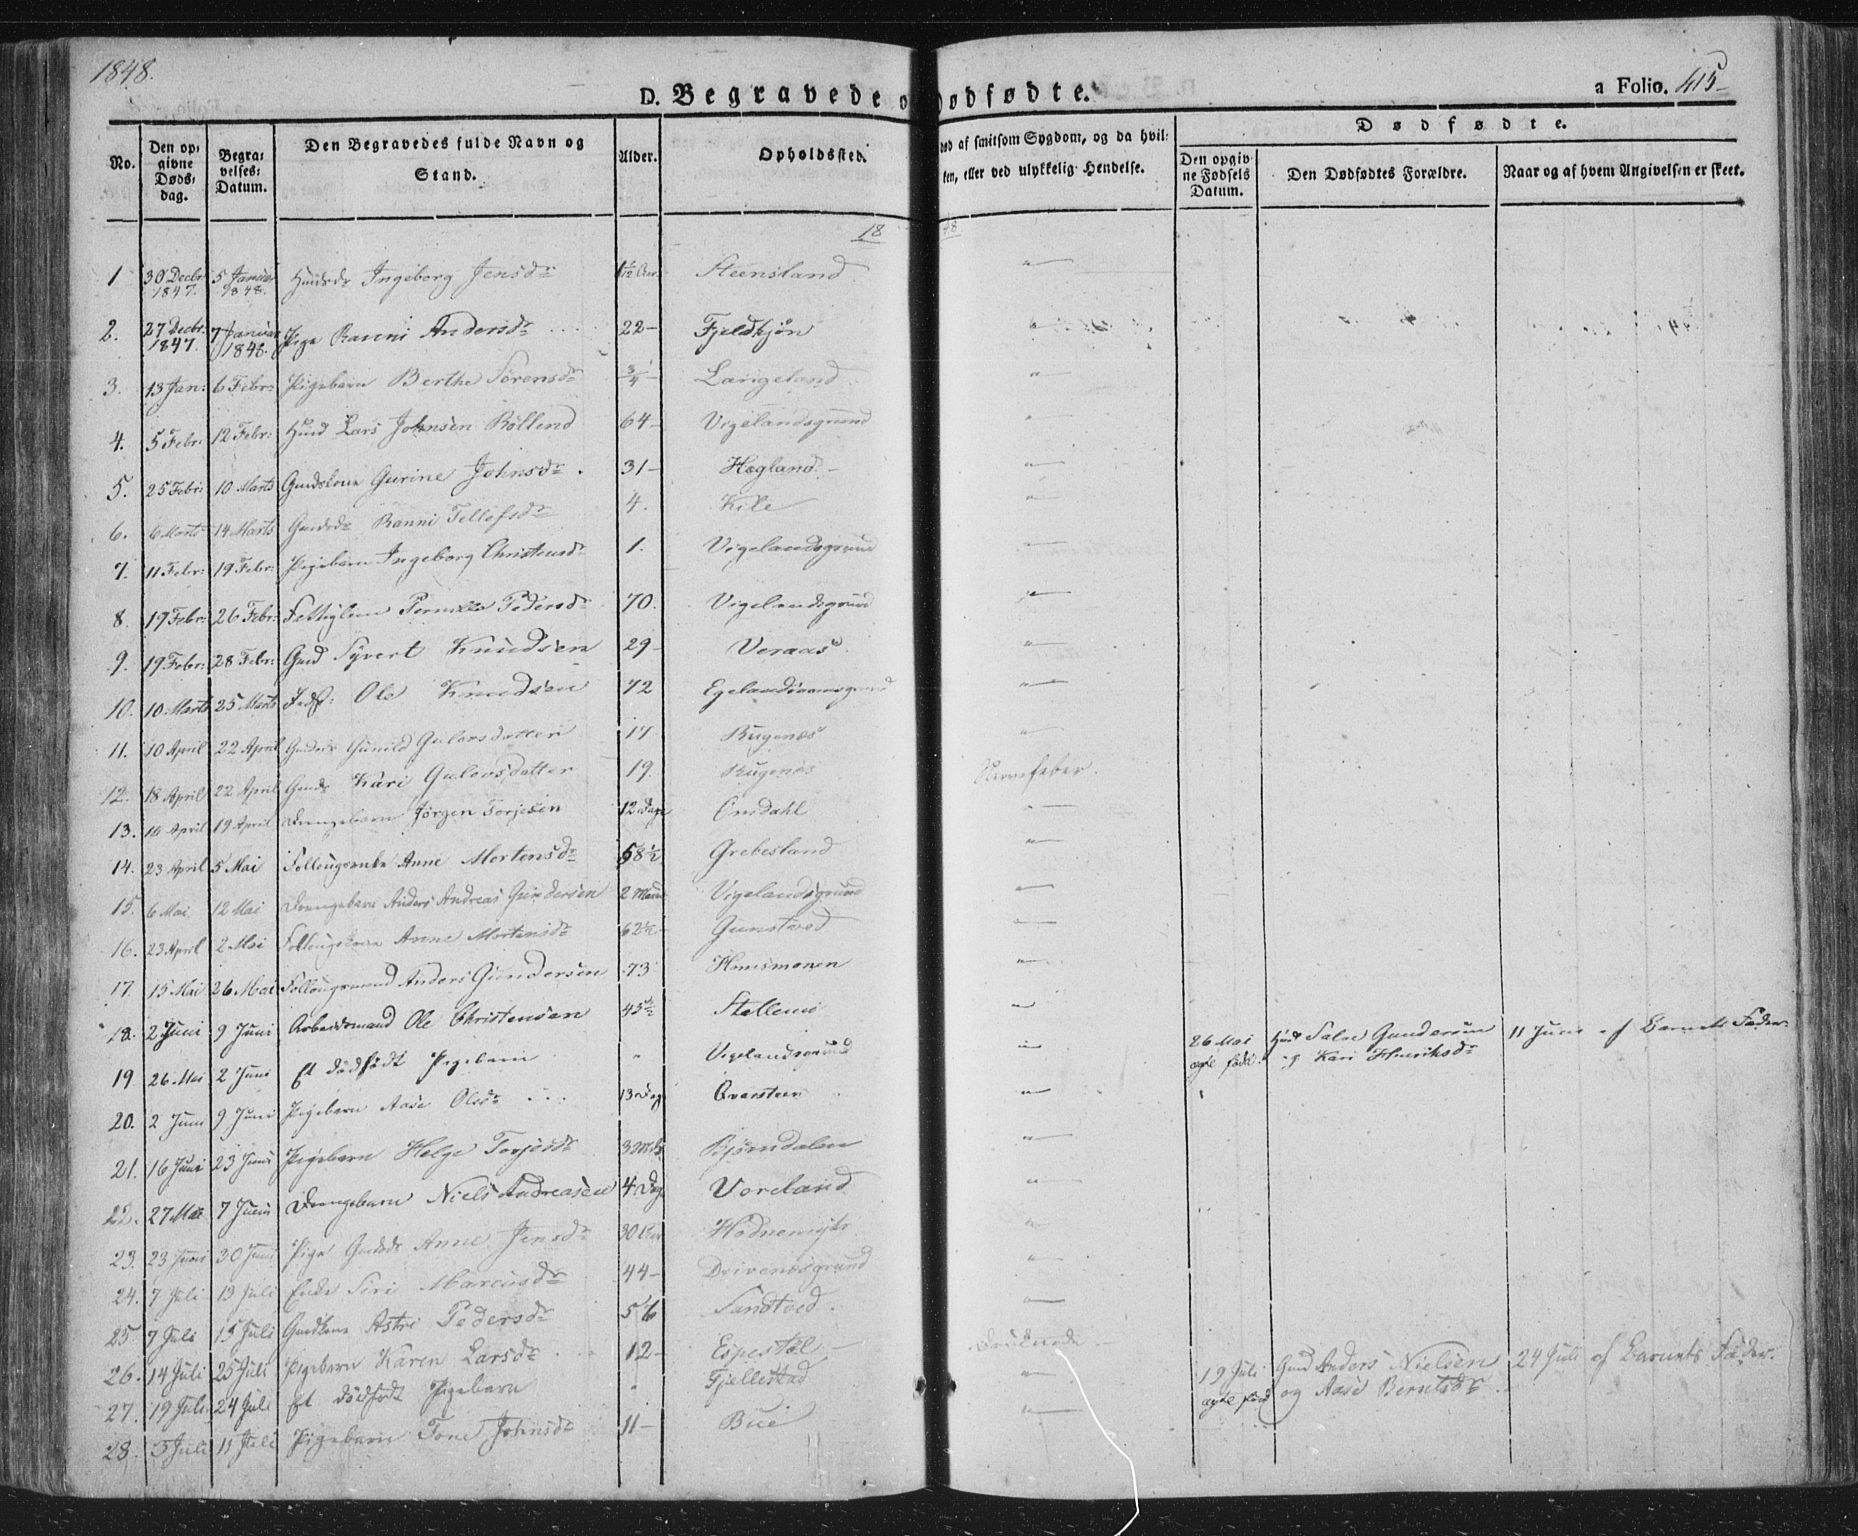 1848.
D. Begravede o
Dødfødte.
a Folio. 415
No.
Den opgivne Dødsdag.
Begravelses-Datum.
Den Begravedes fulde Navn og Stand.
Alder.
Opholdssted.
død af smitsom Sygdom, og da hvilken, eller ved ulykkelig Hendelse.
Dødfødte.
Den opgivne Fødsels Datum.
Den Dødfødtes Forældre.
Naar og af hvem Angivelsen er skeet.
18 48
1 30 Decbr 1847. 5 Januar 1848. Ingeborg Jensdr Steensland
2. 27 Decbr. 1847. 7 Januar 1848. Pige Ranni Andersdr 22 Fjeldkjøn
3. 13 Jan: 6 Febr: Pigebarn Berthe Sørensdr 3/4 Langeland
4. 5 Febr: 12 Febr: Lars Johnsen Röllend 64 Vigelandsgrund
5. 25 Febr: 10 Marts Gurine Johnsdr 31 Hægland
6. 6 Marts 14 Marts Ranni Tellefsdr 4. Kile
7. 11 Febr: 19 Febr: Pigebarn Ingeborg Christensdr 1. Vigelandsgrund
8. 19 Febr: 26 Febr: Pernille Pedersdr 70. Vigelandsgrund
9. 19 Febr: 28 Febr: Gmd Syvert Knudsen 29 Veraas
10. 10 Marts 25 Marts Ole Knudsen 72
11. 10 April 22 April Gunild Gulovsdatter 17 Rugenæs
12. 18 April 22 April Kari Gulovsdatter 19. Rugenes Nervefeber.
13. 14 April 19 April Drengebarn Jörgen Torjesen 12 Dage Omdahl
14. 23 April 5 Mai Anne Mortensdr 58 1/2 Grebesland
15. 6 Mai 12 Mai Drengebarn Anders Andreas Gundersen 2 Maan Vigelandsgrund
16. 23 April 2 Mai Anne Mortensdr 62 1/2 Gunstved
17. 15 Mai 26 Mai Follougsmand Anders Gundersen 73 Homsmonen
18. 2 Juni 9 Juni Arbeidsmand Ole Christensen 45 1/2
19. 26 Mai 2 Juni Et dödfödt Pigebarn " Vigelandsgrund 26 Mai ægte född. Salve Gundersen og Kari Henriksdr 11 Juni af Barnets Fader
20. 2 Juni 9 Juni Pigebarn Aase Olsdr 13 Dag Qvarsteen
21. 16 Juni 23 Juni Pigebarn Helge Torjesdr Bjørndalen
22. 27 Mai 7 Juni Drengebarn Niels Andreasen 4 Dag Voreland
23. 23 Juni 30 Juni Pige Anne Jensdr
24. 7 Juli 13 Juli Enke Siri Marcusdr 44 Drivenesgrund
25. 7 Juli 15 Juli Astri Pedersdr 56 Sandtved
26. 14 Juli 25 Juli Pigebarn Karen Larsdr 12 Espestøl Druknede
27. 19 Juli 24 Juli Et dödfödt Pigebarn " Fjellestad 19 Juli ægte född Gmd Anders Nielsen og Aase Berntsdr 24 Juli af Barnets Fader.
28. 5 Juli 11 Juli Pigebarn Tone Johnsdr 11 Bue